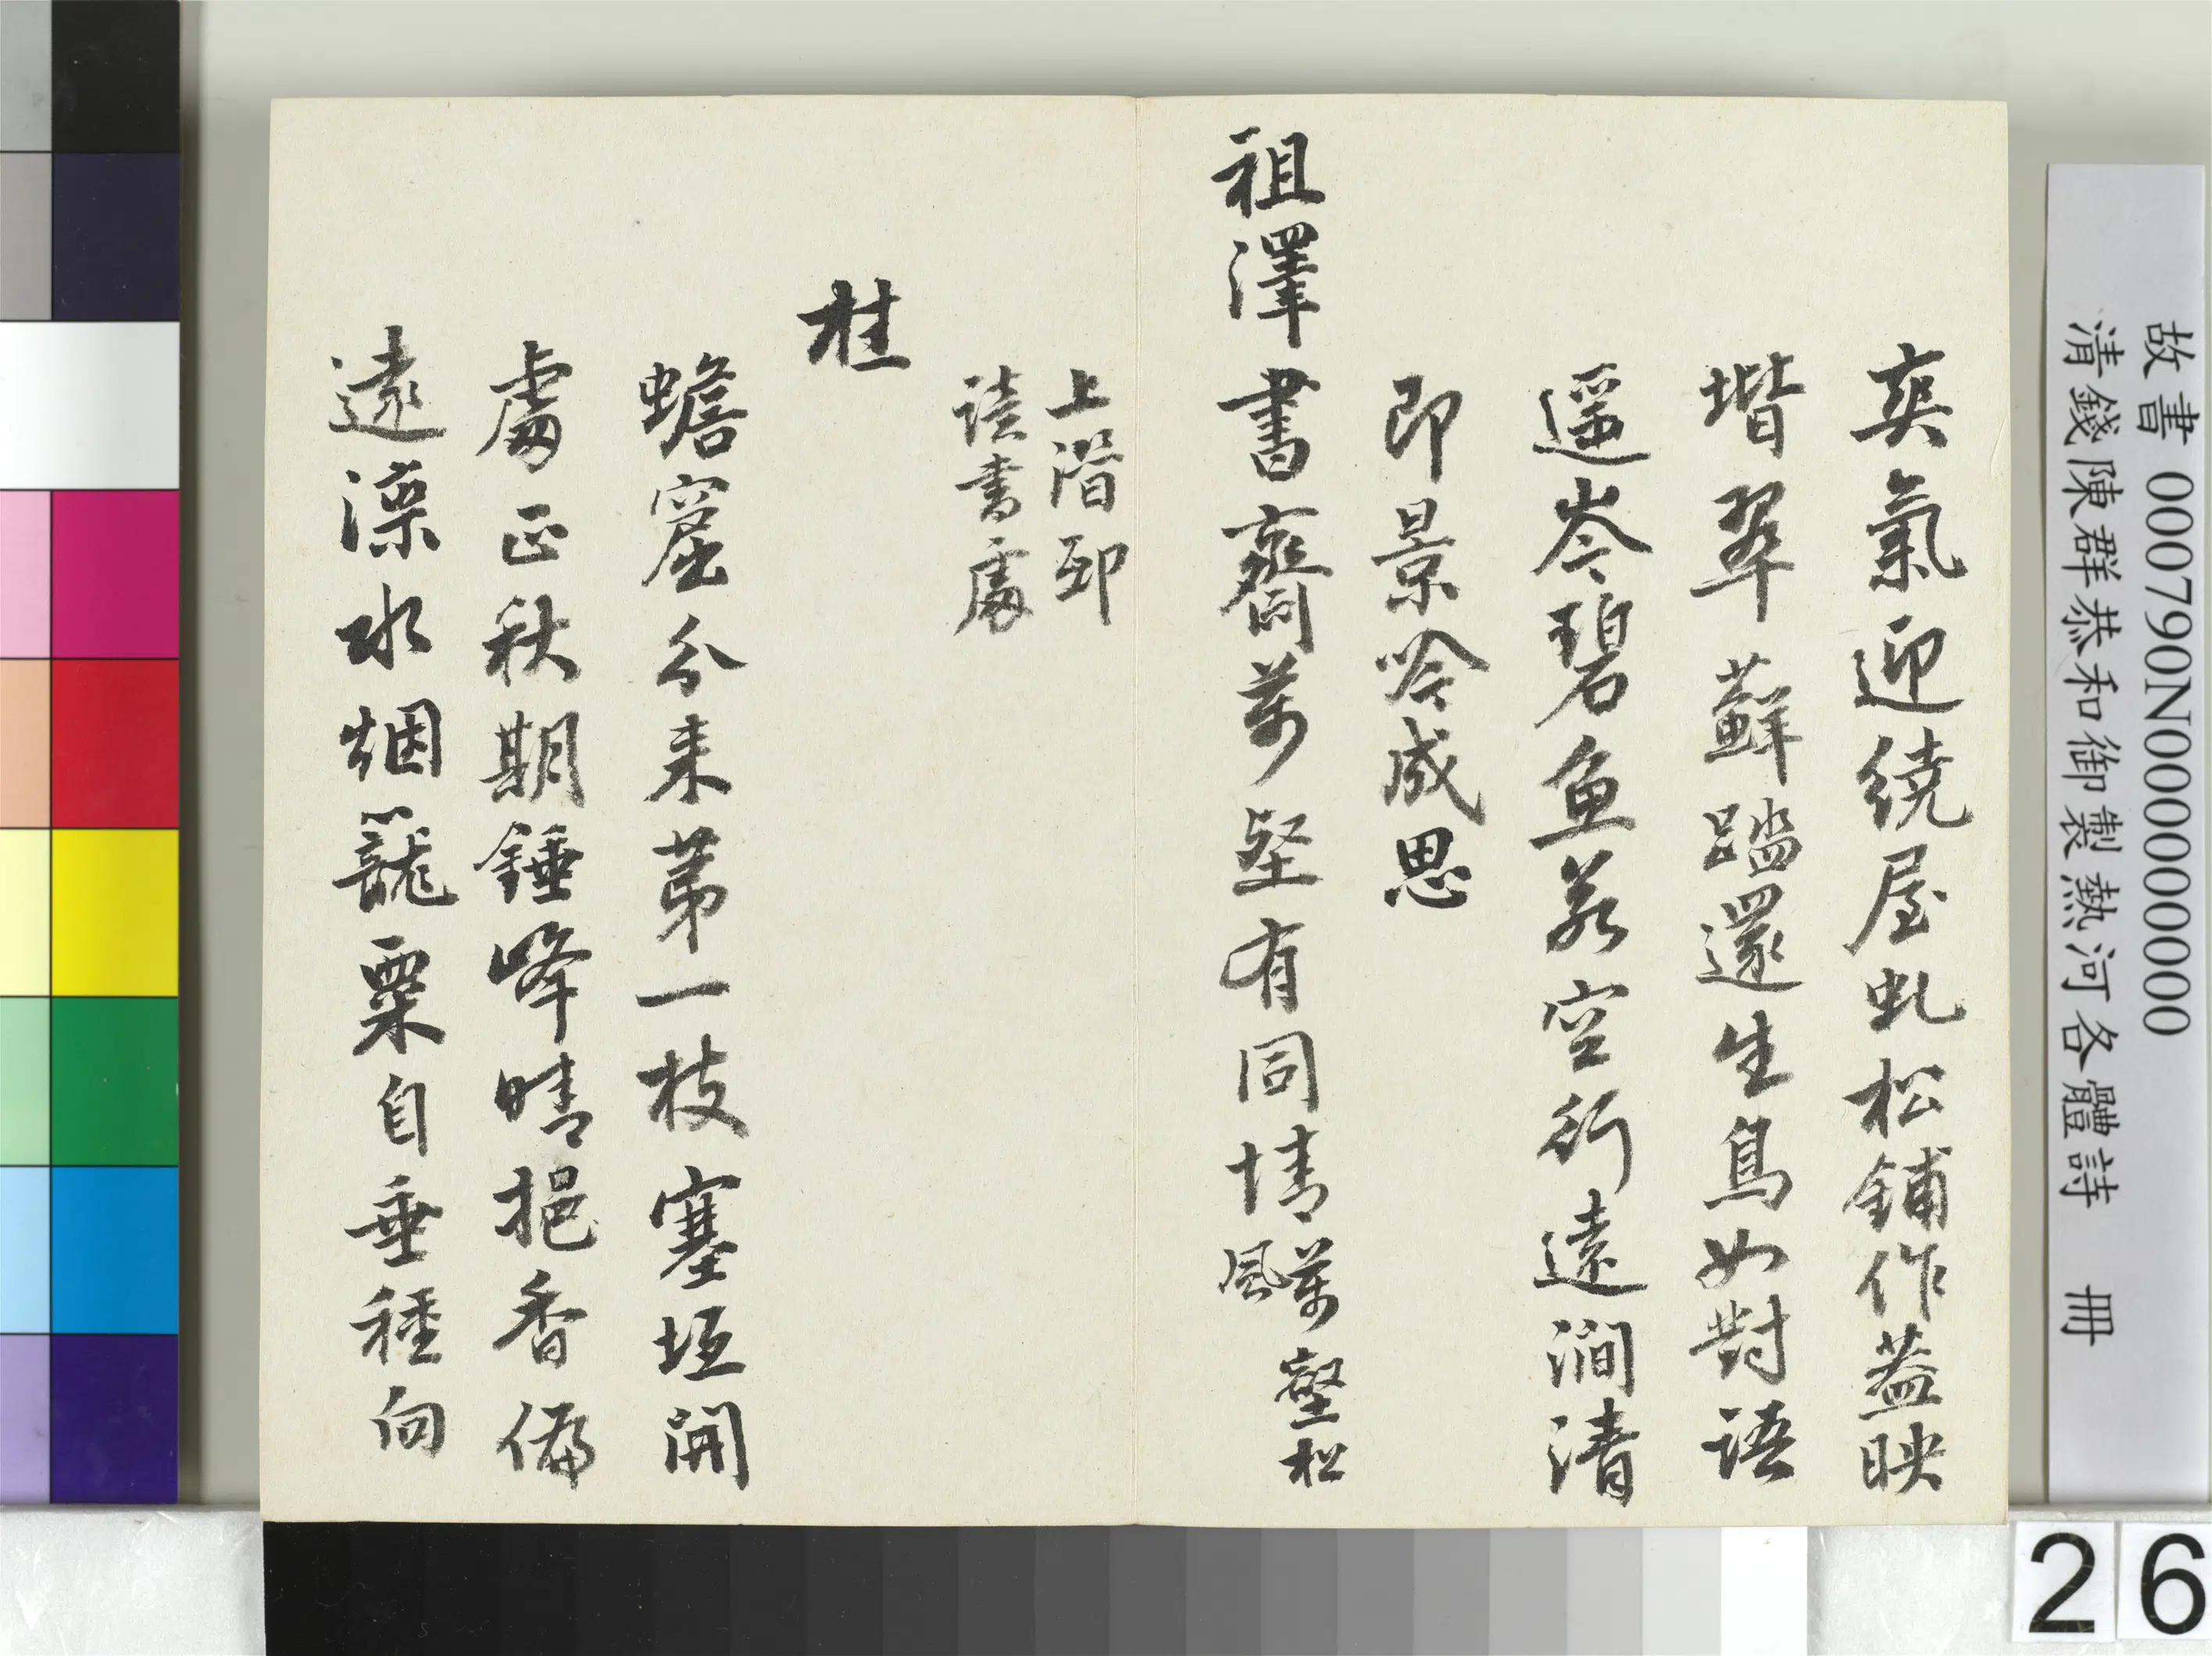 爽氣迎繞屋虬松鋪作葢映
堦翠蘚踏還生鳥如對語
遥岑碧魚若空行遠澗清
即景吟成思
祖澤書齋萬壑有同情萬壑松
風
上潛邸
讀書處
桂
蟾窟分来苐一枝塞垣開
處正秋期錘峰晴挹香偏
遠濼水烟籠粟自垂種向
故書 000790N000000000
清錢陳群恭和御製熱河各體詩 冊
26